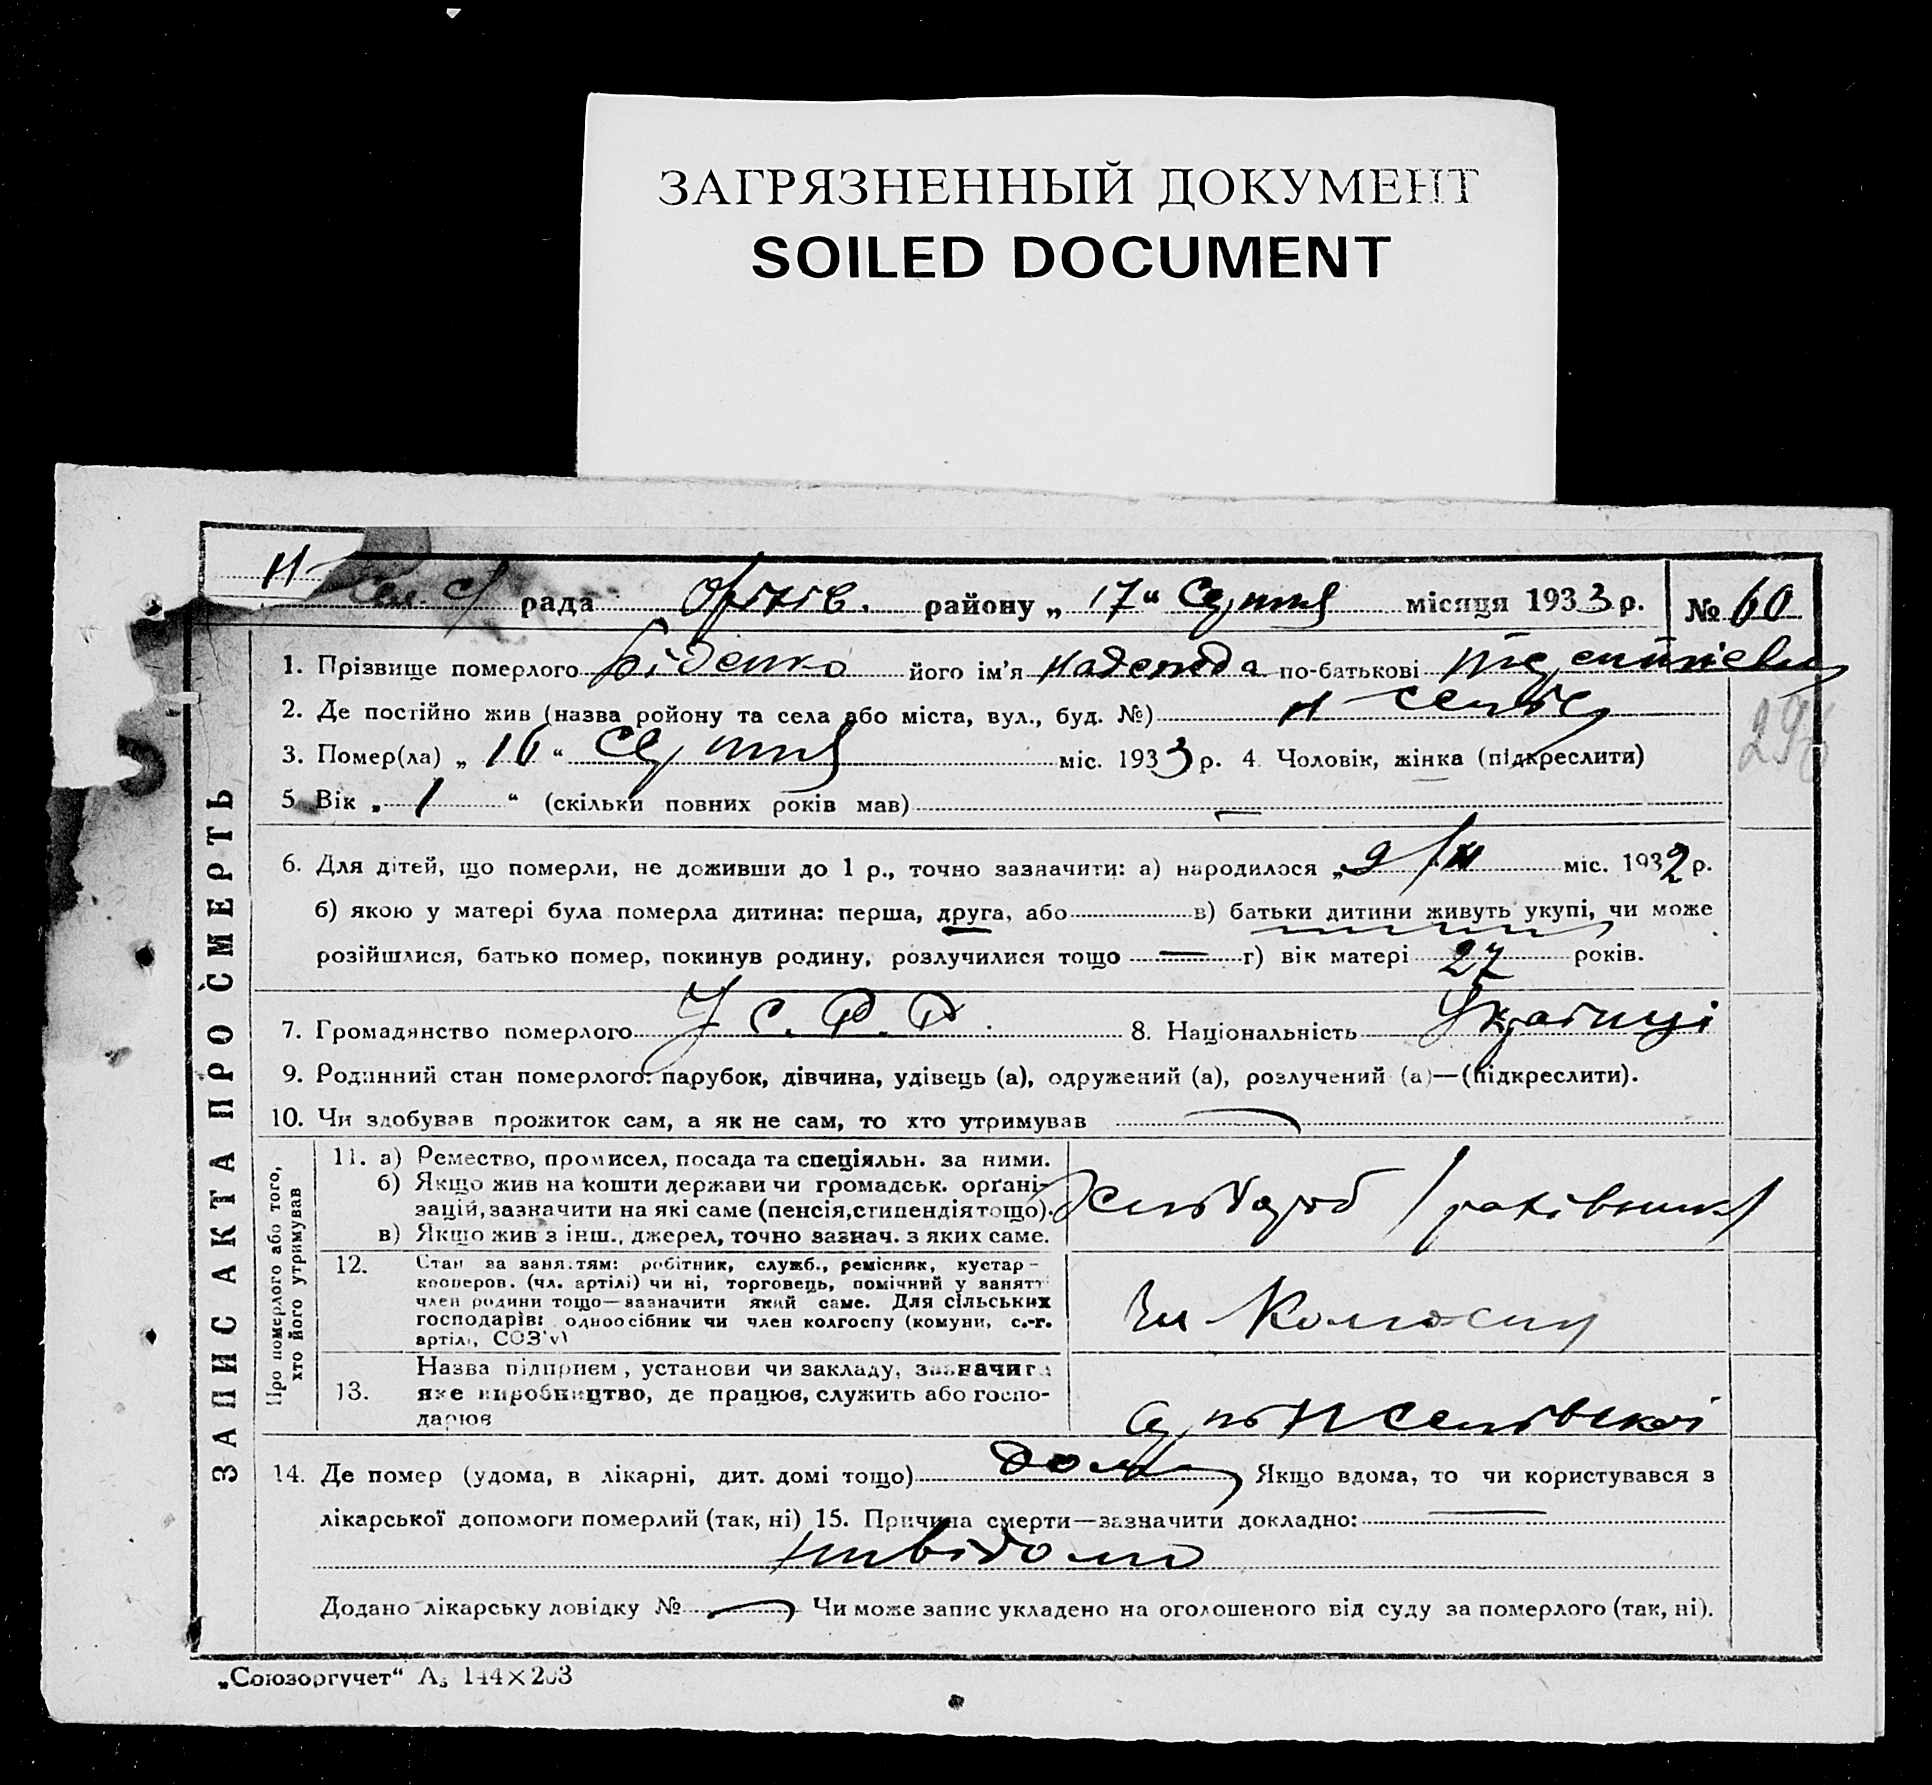 ЗАГРЯЗНЕННЫЙ ДОКУМЕНТ
SOILED DOCUMENT
Н-
Сел. рада Оріхів. району „ 17 “ Серпня місяця 1933 р. № 60
1. Прізвище померлого Біденко його ім’я Надежда по-батькові
2. Де постійно жив (назва ройону та села або міста, вул., буд. №)
3. Помер(ла) „ 16 “ Серпня міс. 1933 р. 4. Чоловік, жінка (підкреслити)
5. Вік „ 1 “ (скільки повних років мав) —
6. Для дітей, що померли, не доживши до 1 р., точно зазначити: а) народилося „ 9/ міс. 1932 р.
б) якою у матері була померла дитина: перша, друга, або в) батьки дитини живуть укупі, чи може
розійшлися, батько помер, покинув родину, розлучилися тощо — г) вік матері 27 років.
7. Громадянство померлого У С. Р. Р. 8. Національність Українці
9. Родинний стан померлого: парубок, дівчина, удівець (а), одружений (а), розлучений (а)—(підкреслити).
10. Чи здобував прожиток сам, а як не сам, то хто утримував —
ЗАПИС АКТА ПРО СМЕРТЬ
Про померлого або того,
хто його утримував
11. а) Ремество, промисел, посада та спеціяльн. за ними.
б) Якщо жив на кошти держави чи громадськ. орґані-
зацій, зазначити на які саме (пенсія, стипендія тощо).
в) Якщо жив з інш., джерел, точно зазнач. з яких саме.
12. Стан за занят.тям: робітник, служб., ремісник, кустар-
кооперов. (чл. артілі) чи ні, торговець, помічний у занятт
член родини тощо—зазначити який саме. Для сільських
господарів: одноосібник чи член колгоспу (комуни, с.-г.
артілі, СОЗ'у)
Чл Колгоспу
13. Назва підприєм, установи чи закладу, зазначити
яке виробництво, де працює, служить або госпо-
дарює
14. Де помер (удома, в лікарні, дит. домі тощо) дома Якщо вдома, то чи користувався з
лікарської допомоги померлий (так, ні) 15. Причина смерти—зазначити докладно: —
невідомо
Додано лікарську довідку № — Чи може запис укладено на оголошеного від суду за померлого (так, ні).
„Союзоргучет“ А₅ 144×203